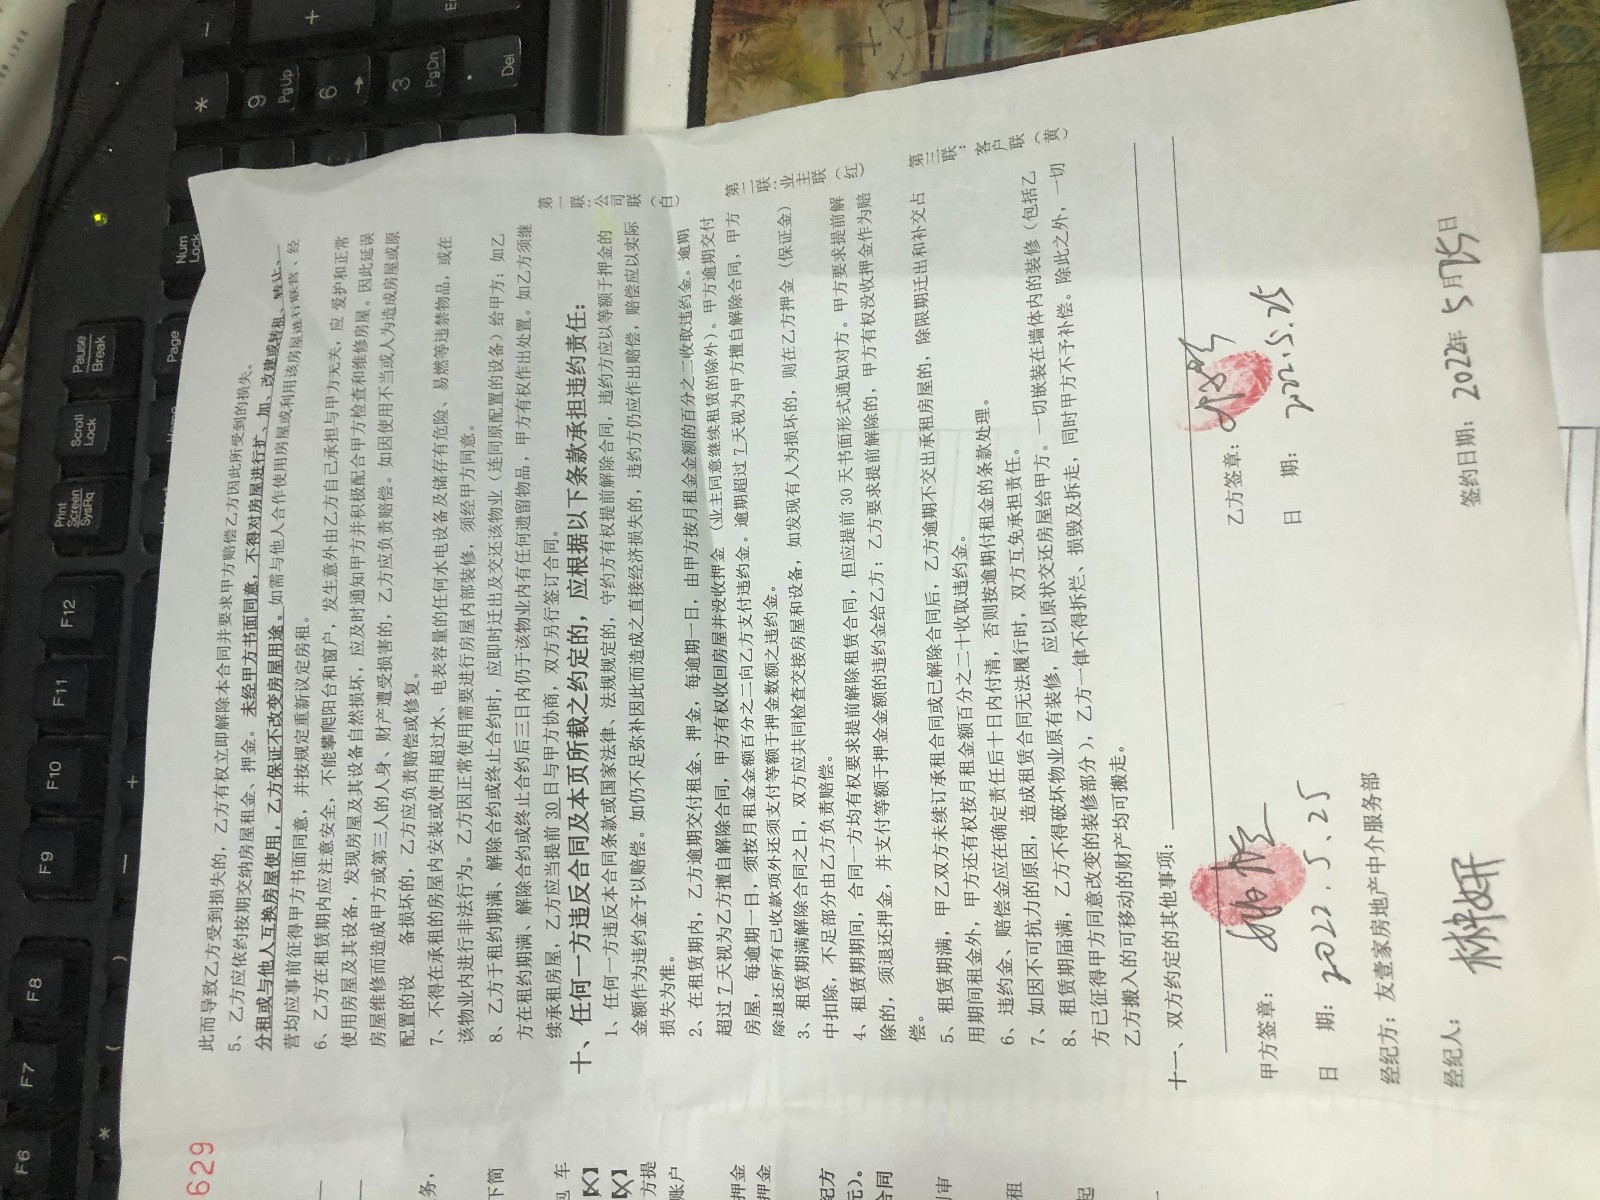 此而导致乙方受到损失的，乙方有权立即解除本合同并要求甲方赔偿乙方因此所受到的损失。
5、乙方应依约按期交纳房屋租金、押金。未经甲方书面同意，不得对房屋进行扩、加、改建或转租、转让、
分租或与他人互换房屋使用，乙方保证不改变房屋用途。如需与他人合作使用房屋或利用该房屋进行联营、经
营均应事前征得甲方书面同意，并按规定重新议定房租。
6、乙方在租赁期内应注意安全，不能攀爬阳台和窗户，发生意外由乙方自己承担与甲方无关，应 爱护和正常
使用房屋及其设备，发现房屋及其设备自然损坏，应及时通知甲方并积极配合甲方检查和维修房屋。因此延误
房屋维修而造成甲方或第三人的人身、财产遭受损害的，乙方应负责赔偿。如因使用不当或人为造成房屋或原
配置的设 备损坏的，乙方应负责赔偿或修复。
7、不得在承租的房屋内安装或使用超过水、电表容量的任何水电设备及储存有危险、易燃等违禁物品，或在
该物业内进行非法行为。乙方因正常使用需要进行房屋内部装修，须经甲方同意。
8、乙方于租约期满、解除合约或终止合约时，应即时迁出及交还该物业（连同原配置的设备）给甲方；如乙
方在租约期满、解除合约或终止合约后三日内仍于该物业内有任何遗留物品，甲方有权作出处置。如乙方须继
续承租房屋，乙方应当提前 30 日与甲方协商，双方另行签订合同。
十、任何一方违反合同及本页所载之约定的，应根据以下条款承担违约责任：
1、任何一方违反本合同条款或国家法律、法规规定的，守约方有权提前解除合同，违约方应以等额于押金的
金额作为违约金予以赔偿。如仍不足弥补因此而造成之直接经济损失的，违约方仍应作出赔偿，赔偿应以实际
损失为准。
2、在租赁期内，乙方逾期交付租金、押金，每逾期一日，由甲方按月租金金额的百分之二收取违约金。逾期
超过 7 天视为乙方擅自解除合同，甲方有权收回房屋并没收押金（业主同意继续租赁的除外）。甲方逾期交付
房屋，每逾期一日，须按月租金金额百分之二向乙方支付违约金。逾期超过 7 天视为甲方擅自解除合同，甲方
除退还所有已收款项外还须支付等额于押金数额之违约金。
3、租赁期满解除合同之日，双方应共同检查交接房屋和设备，如发现有人为损坏的，则在乙方押金（保证金）
中扣除，不足部分由乙方负责赔偿。
4、租赁期期间，合同一方均有权要求提前解除租赁合同，但应提前 30 天书面形式通知对方。甲方要求提前解
除的，须退还押金，并支付等额于押金金额的违约金给乙方；乙方要求提前解除的，甲方有权没收押金作为赔
偿。
5、租赁期满，甲乙双方未续订承租合同或已解除合同后，乙方逾期不交出承租房屋的，除限期迁出和补交占
用期间租金外，甲方还有权按月租金额百分之二十收取违约金。
6、违约金、赔偿金应在确定责任后十日内付清，否则按逾期付租金的条款处理。
7、如因不可抗力的原因，造成租赁合同无法履行时，双方互免承担责任。
8、租赁期届满，乙方不得破坏物业原有装修，应以原状交还房屋给甲方。一切嵌装在墙体内的装修（包括乙
方已征得甲方同意改变的装修部分），乙方一律不得拆烂、损毁及拆走，同时甲方不予补偿。除此之外，一切
乙方搬入的可移动的财产均可搬走。
十一、双方约定的其他事项：
甲方签章：
乙方签章：
日 期：2022.5.25
日 期：2022.5.25
经纪方：友壹家房地产中介服务部
经纪人：林妍
签约日期：2022年 5 月25日
第一联：公司联（白）
第二联：业主联（红）
第三联：客户联（黄）
629
务，
下简
包 车
【X】
【X】
方提
账户
押金
押金
纪方
元）。
合同
审
租
起
Print
Screen
SysRq
Scroll
Lock
Pause
Break
Num
Lock
Page
Home
F6
F7
F8
F9
F10
F11
F12
9
PgUp
6
3
PgDn
Del
*
+